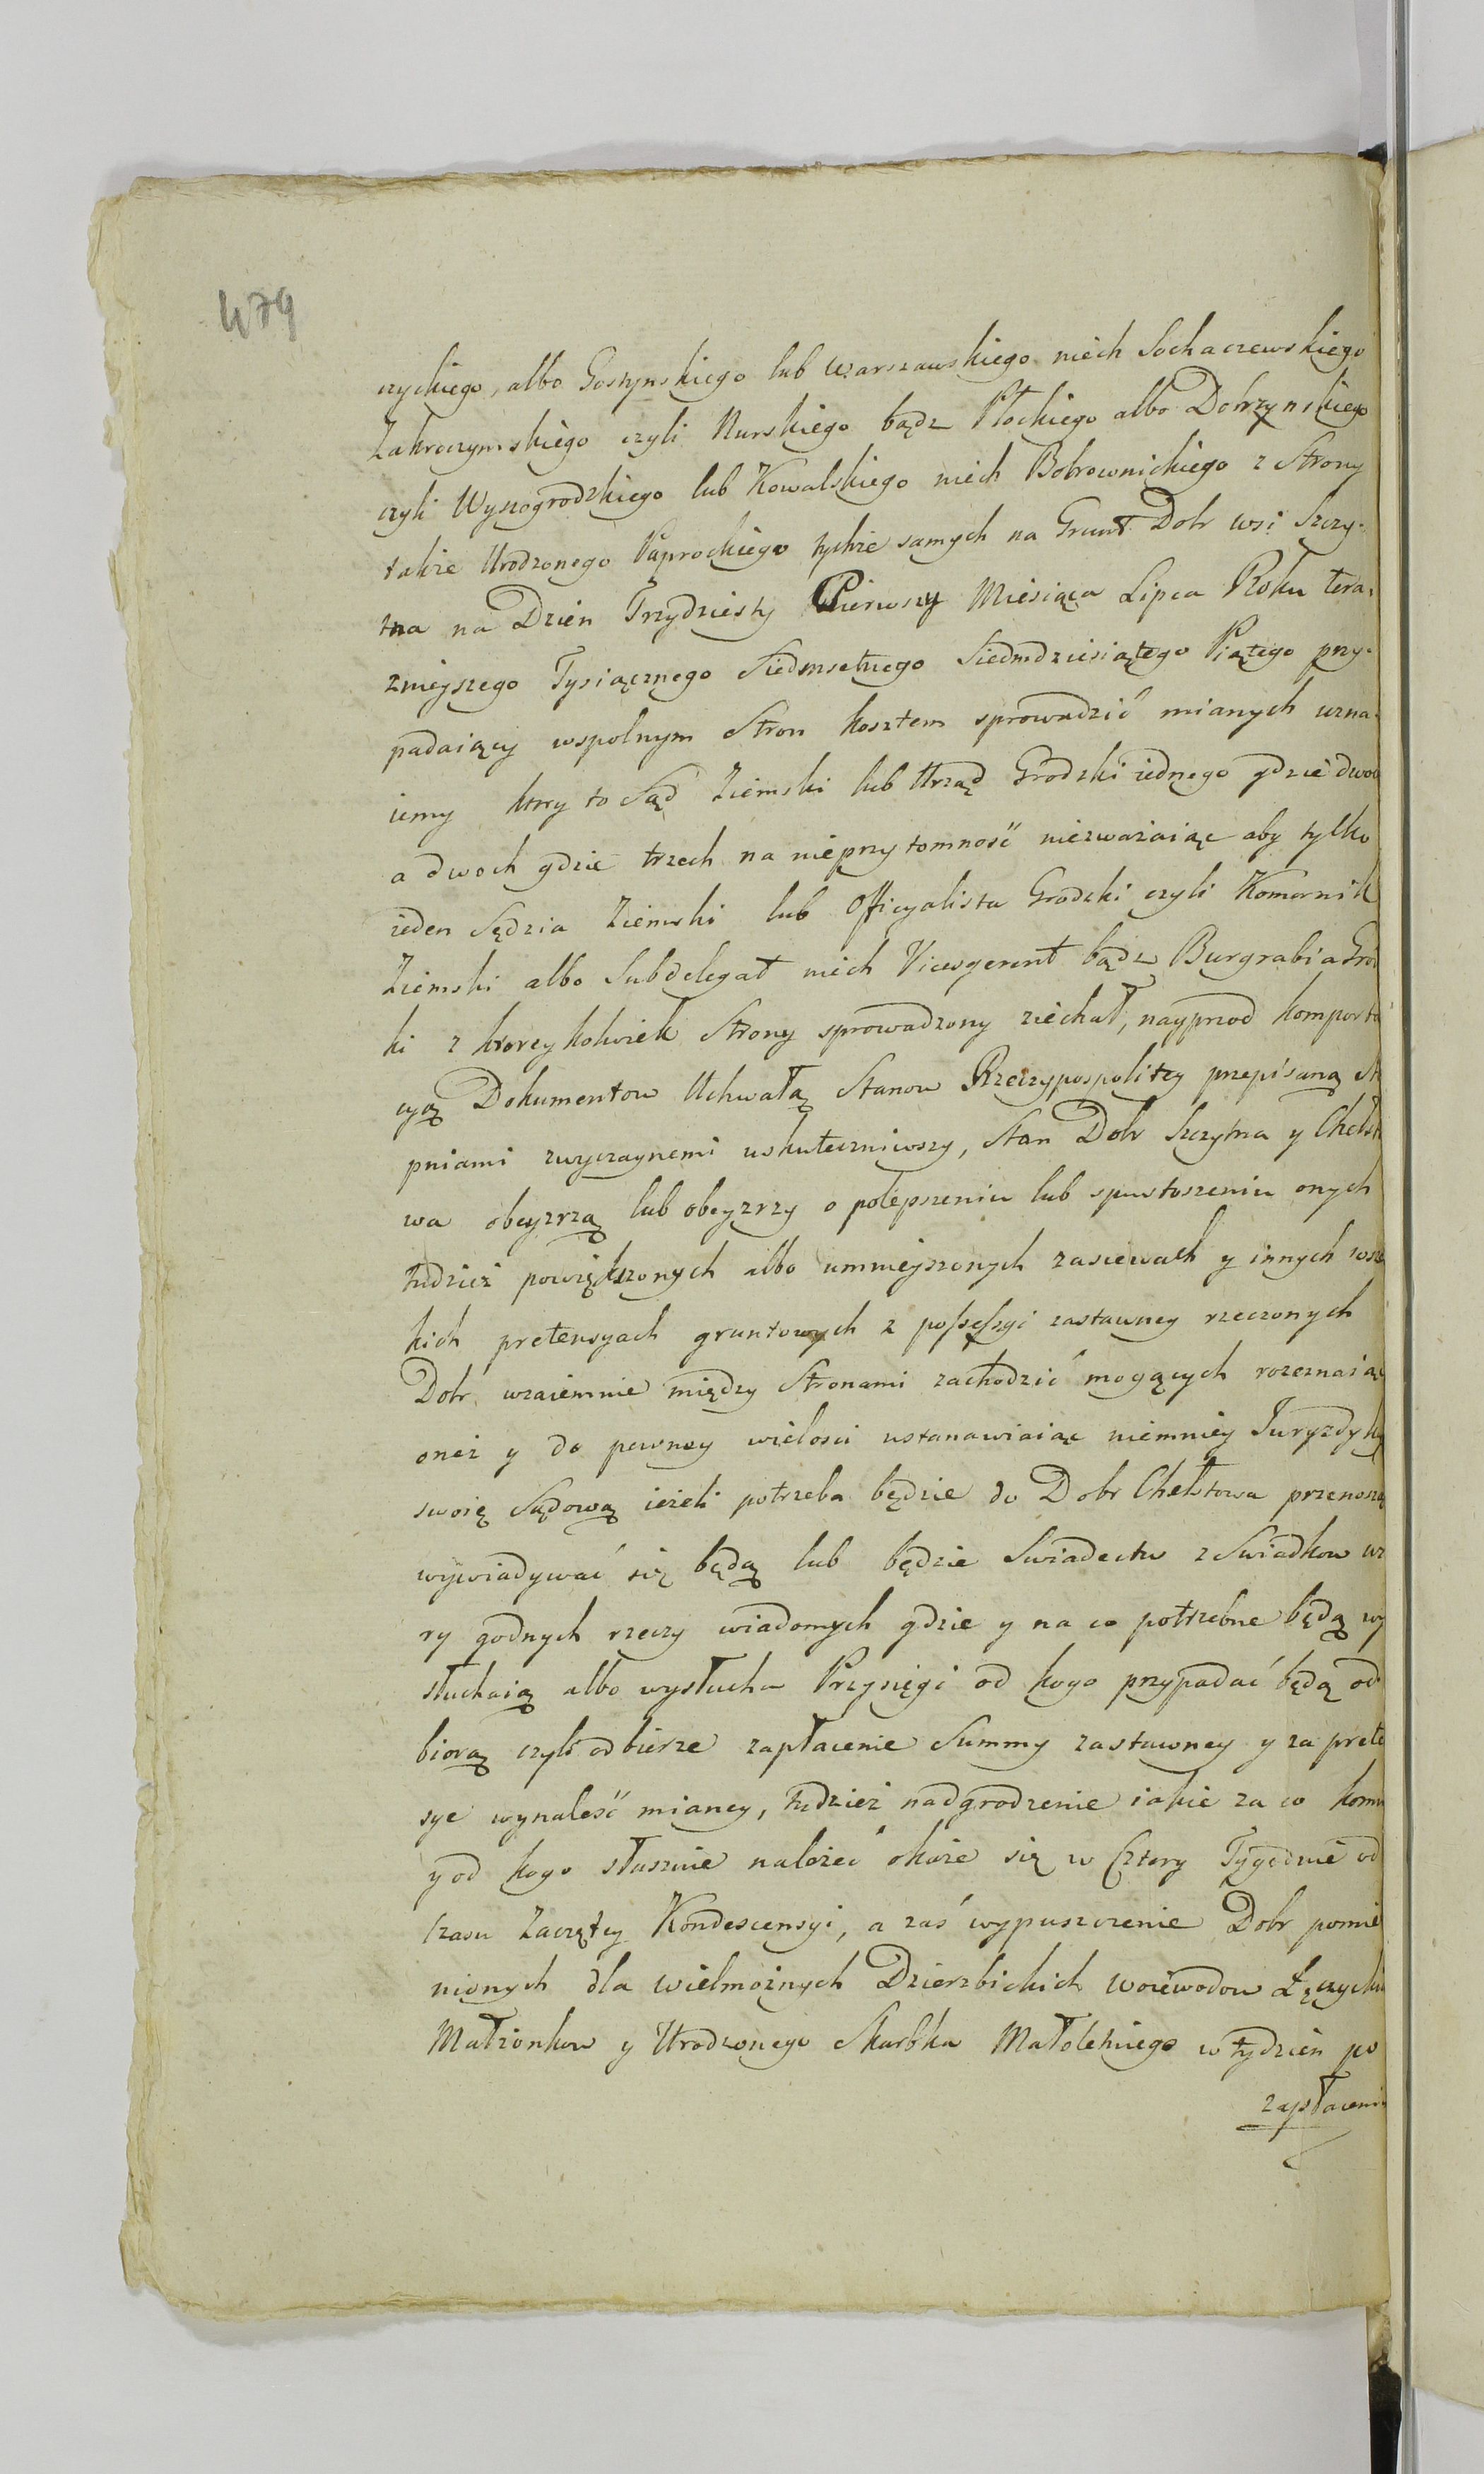 479
czyckiego, albo Gostynskiego lub Warszawskiego niech Sochaczewskiego
Zakroczymskiego czyli Nurskiego bądz Płockiego albo Dobrzynskiego
czyli Wyszogrodzkiego lub Kowalskiego niech Bobrownickiego z Strony
takze Urodzonego Paprockiego tychze samych na Grunt Dobr wsi Szczy-
tna na Dzien Trzydziesty Pierwszy Miesiąca Lipca Roku tera-
znieyszego Tysiącznego Siedmsetnego Siedmdziesiątego Piątego przy-
padaiący wspolnym Stron kosztem sprowadzić mianych uzna-
iemy ktory to Sąd Ziemski lub Urząd Grodzki iednego gdzie dwoch
a dwoch gdzie trzech na nieprzytomność niezważaiąc aby tylko
ieden Sędzia Ziemski lub Officyalista Grodzki czyli Komornik
Ziemski albo Subdelegat niech Vicesgerent bądz Burgrabia Gro
ki z ktorey kolwiek Strony sprowadzony ziechał, nayprzod komporta
cyą Dokumentow Uchwałą Stanow Rzeczypospolitey przepisaną st
pniami zwyczaynemi uskuteczniwszy, Stan Dobr Szczytna y Chelst
wa obeyzrzą lub obeyzrzy o polepszeniu lub spustoszeniu onych
tudziez powiększonych albo umnieyszonych zasiewach y innych wsze
kich pretensyach gruntowych z possessyi zastawney rzeczonych
Dobr wzaiemnie między Stronami zachodzić mogących rozeznaiąc
oneż y do pewney wielosci ustanawiaiąc niemniey Juryzdyk
swoię Sądową ieżeli potrzeba będzie do Dobr Chelstowa przenosząc
wywiadywać się będą lub będzie Swiadectw z Swiadkow wia
ry godnych rzeczy wiadomych gdzie y na co potrzebne będą wy
słuchaią albo wysłucha Przysięgi od kogo przypadać będą od
biorą czyli odbierze zapłacenie Summy zastawney y za prete
sye wynaleść mianey, tudzież nadgrodzenie iakie za co komu
y od kogo słusznie należeć okaże się w Cztery Tygodnie od
Czasu Zaczętey Kondescensyi, a zaś wypuszczenie Dobr pomie
nionych dla Wielmożnych Dzierzbickich Woiewodow Łęczycki
Małżonkow y Urodzonego Skarbka Małoletniego w tydzień po
zapłaceniu